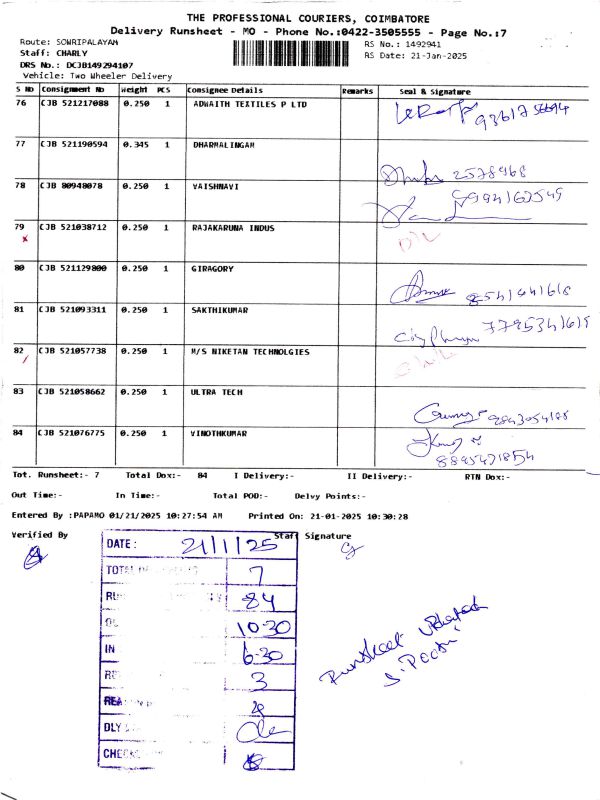 THE PROFESSIONAL COURIERS, COIMBATORE
Delivery Runsheet - MO - Phone No.:0422-3505555 - Page No.:7
Route: SOWRIPALAYAM
Staff: CHARLY
DRS No.: DCJB149294107
Vehicle: Two Wheeler Delivery
RS No.: 1492941
RS Date: 21-Jan-2025
S NO Consignment No Weight PCS Consignee Details Remarks Seal & Signature
76 CJB 521217088 0.250 1 ADWAITH TEXTILES P LTD
77 CJB 521190594 0.345 1 DHARMALINGAM
2578968
78 CJB 80948078 0.250 1 VAISHNAVI
79 CJB 521038712 0.250 1 RAJAKARUNA INDUS
80 CJB 521129800 0.250 1 GIRAGORY
8541441618
81 CJB 521093311 0.250 1 SAKTHIKUMAR
7795341619
82 CJB 521057738 0.250 1 M/S NIKETAN TECHNOLGIES
83 CJB 521058662 0.250 1 ULTRA TECH
84 CJB 521076775 0.250 1 VINOTHKUMAR
8895471854
Tot. Runsheet:- 7 Total Dox:- 84 I Delivery:- II Delivery:- RTN Dox:-
Out Time:- In Time:- Total POD:- Delvy Points:-
Entered By :PAPAMO 01/21/2025 10:27:54 AM Printed On: 21-01-2025 10:30:28
Verified By Staff Signature
DATE: 21/1/25
7
84
10-30
IN 6-30
3
4
DLY
Runsheet